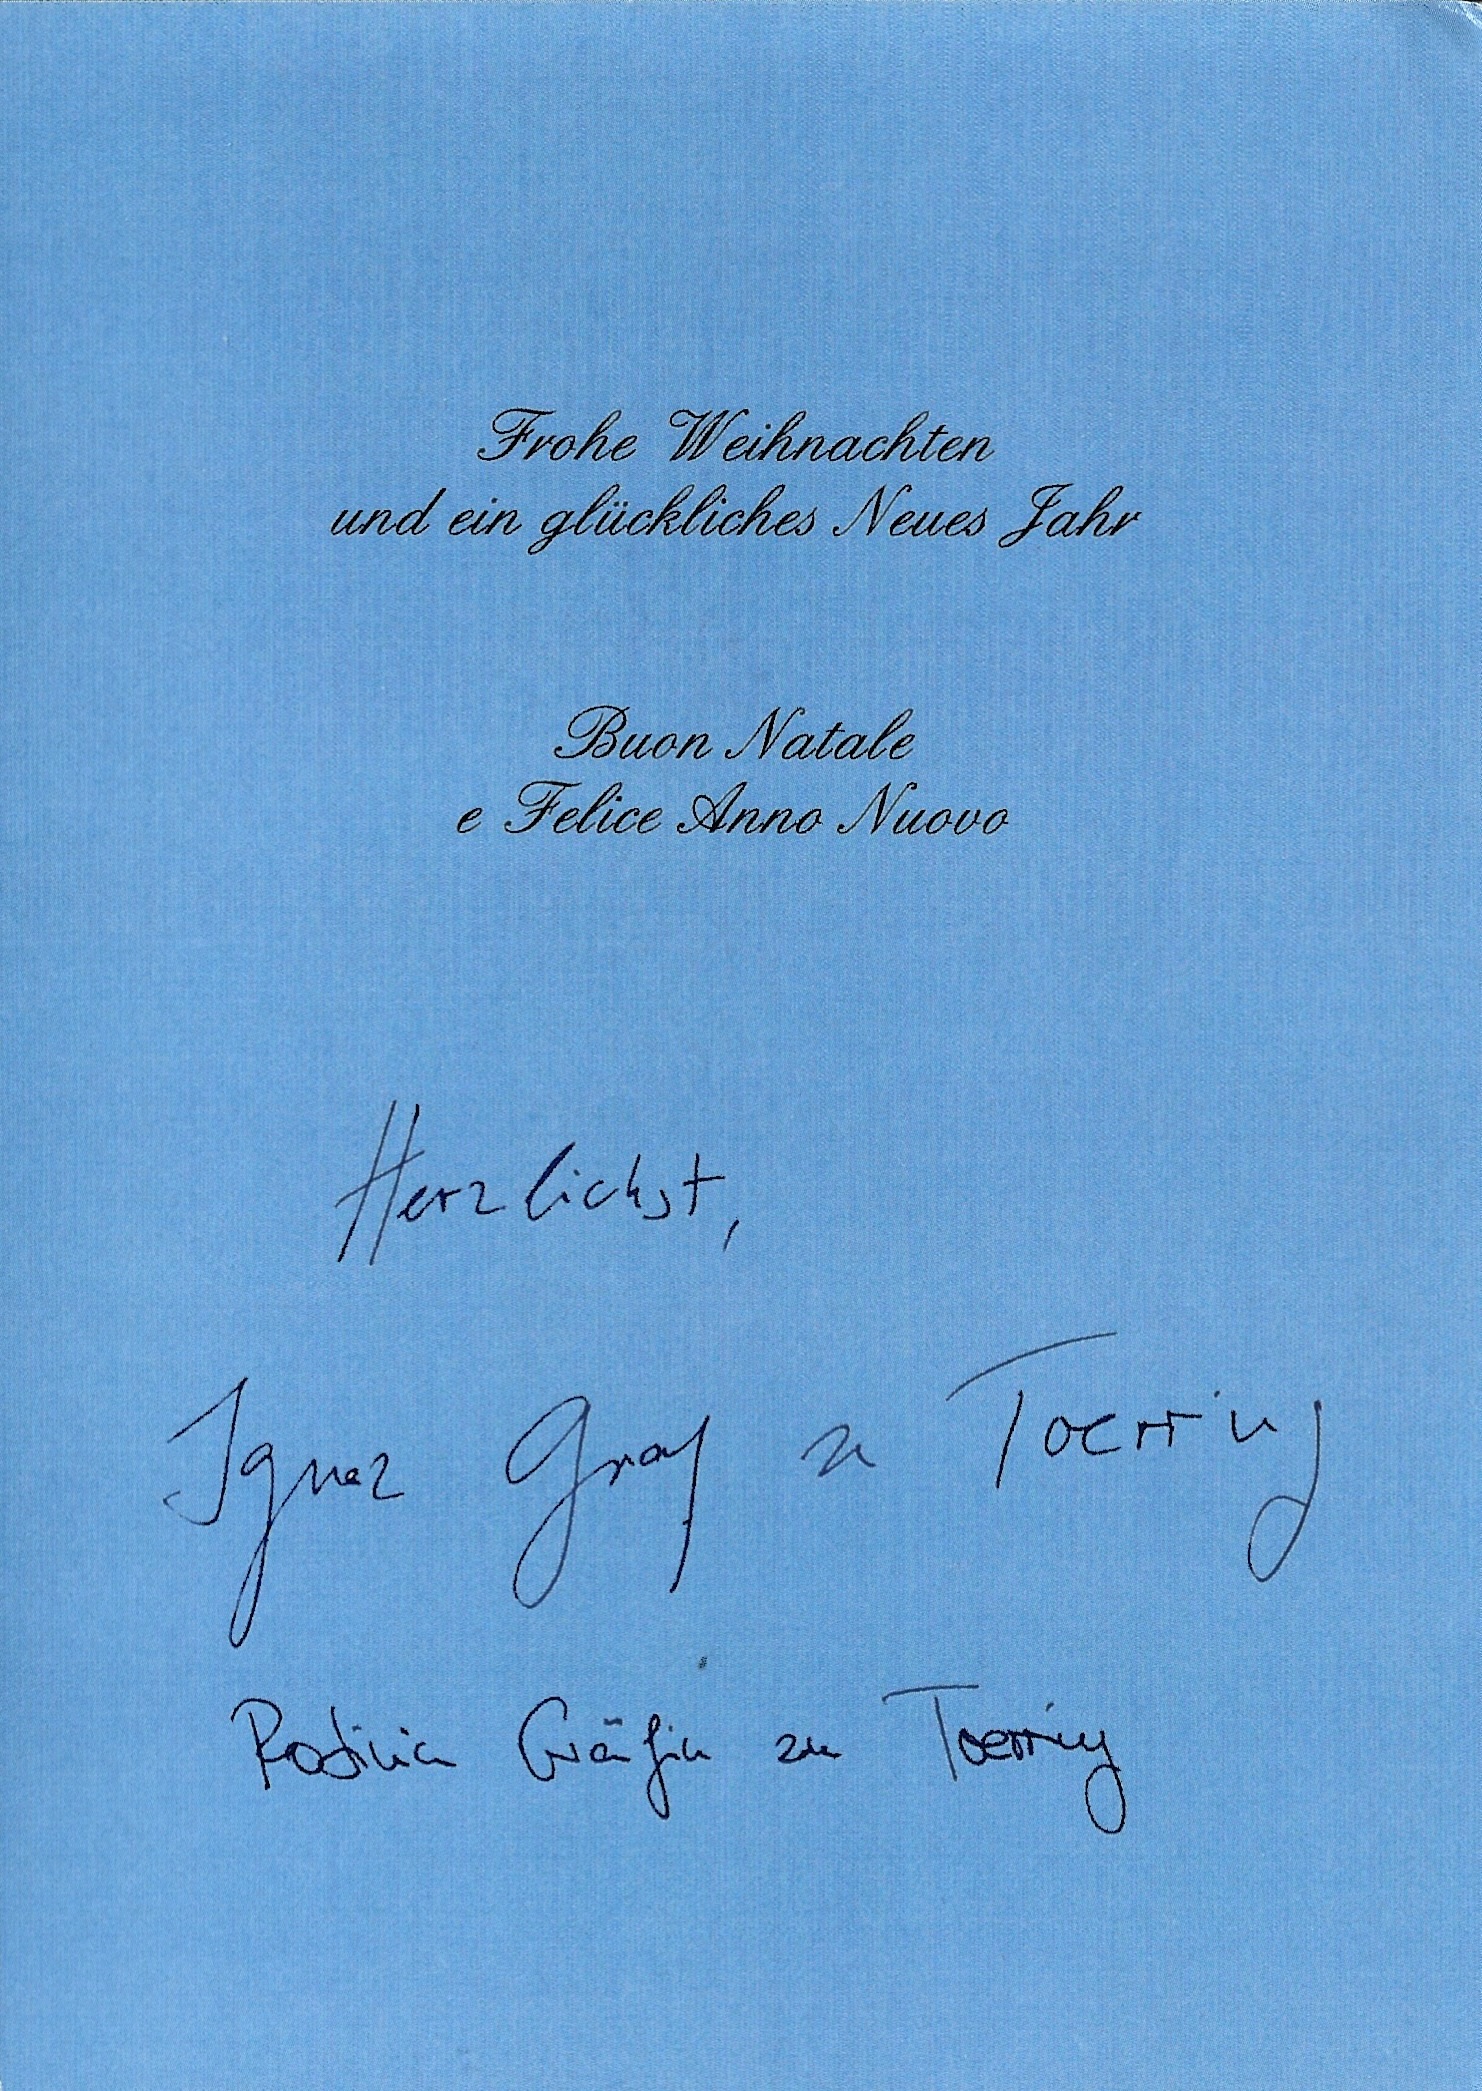 Frohe Weihnachten
und ein glückliches Neues Jahr
Buon Natale
e Felice Anno Nuovo
Herzlichst,
Ignaz Graf zu Toerring
Gräfin zu Toerring